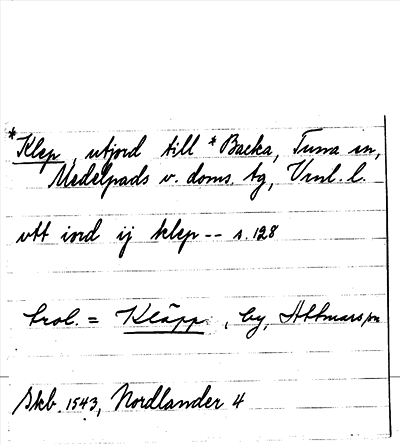 *Klep, utjord till *Backa, Tuna sn,
Medelpads v. doms. tg, Vrnl. l.
vtt iord ij klep -- s. 128
trol. = Kläpp, by, Attmars sn
Skb. 1543, Nordlander 4